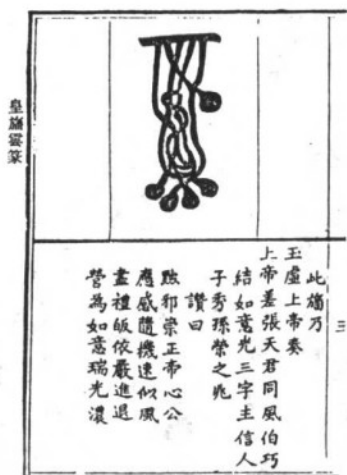 皇旛雲篆
三
此旛乃
玉虛上帝奏
上帝差張天君同風伯巧
結如意光三字主信人
子秀孫榮之兆
讚曰
黜邪崇正帝心公
應感隨機速似風
盡禮皈依嚴進退
營為如意瑞光濃